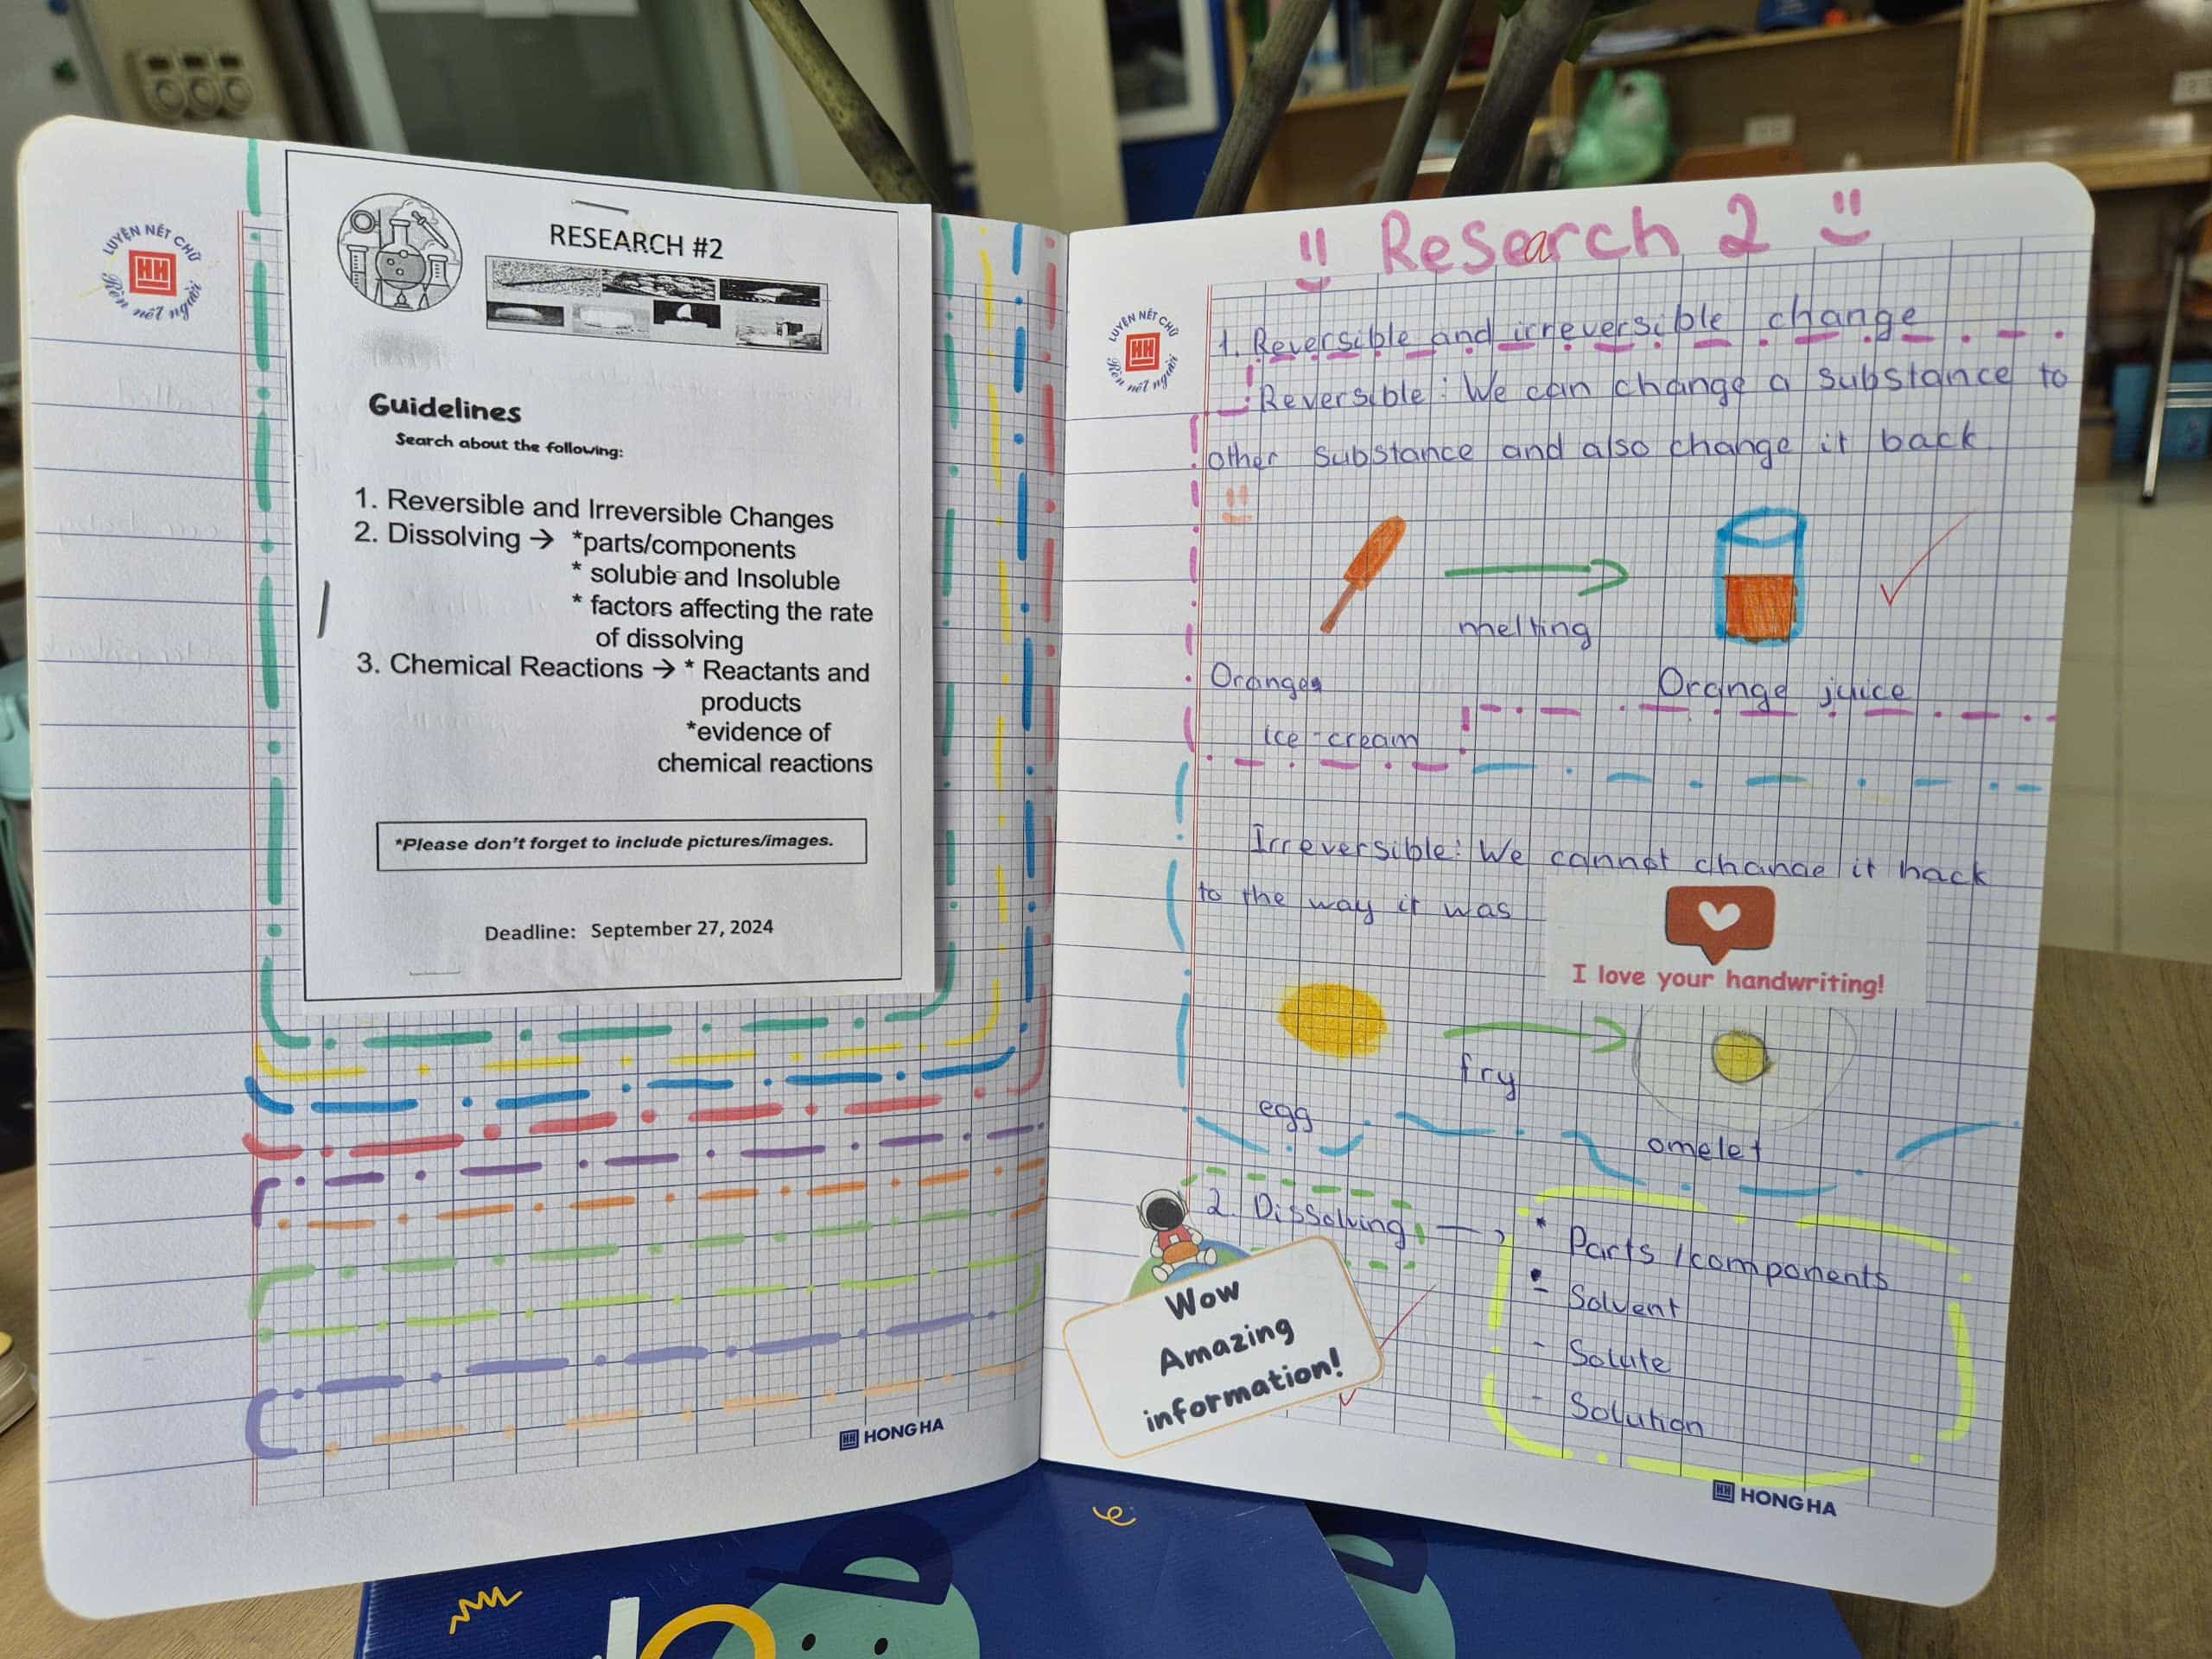 LUYỆN NÉT CHỮ
HH
Rèn nết người
RESEARCH #2
Guidelines
Search about the following:
1. Reversible and Irreversible Changes
2. Dissolving → *parts/components
* soluble and Insoluble
* factors affecting the rate
of dissolving
3. Chemical Reactions → * Reactants and
products
*evidence of
chemical reactions
*Please don't forget to include pictures/images.
Deadline: September 27, 2024
HH HONG HA
Research 2
LUYỆN NÉT CHỮ
HH
Rèn nết người
1. Reversible and irreversible change
Reversible: We can change a substance to
other substance and also change it back
melting
Orange
ice-cream
Orange juice
Irreversible: We cannot change it back
to the way it was
I love your handwriting!
fry
egg
omelet
2. Dissolving → * Parts/components
- Solvent
- Solute
- Solution
Wow
Amazing
information!
HH HONG HA